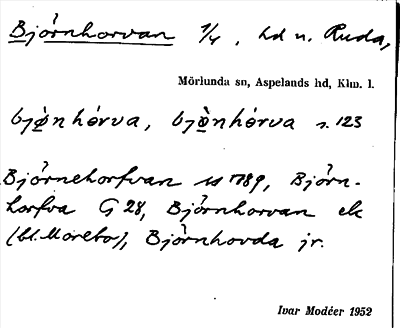 Björnhorvan 1/4, hd n. Ruda,
Mörlunda sn, Aspelands hd, Klm. l.
bjø̀nhórva, bjø̀nhórva s. 123
Björnehorfvan 1789, Björn-
horfva G 28, Björnhorvan ek
(bl. Morebo), Björnhovda jr.
Ivar Modéer 1952